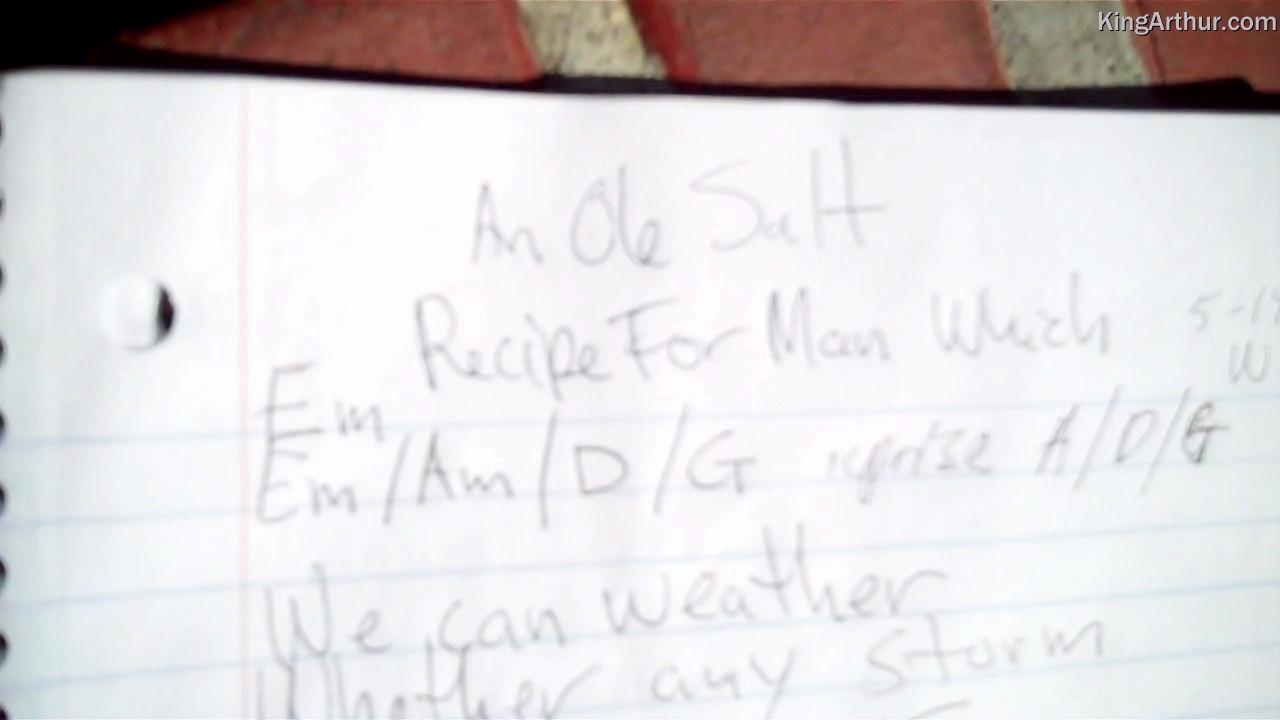 KingArthur.com
An Ole Salt
Recipe For Man Which
5-1
W
Em
Em/Am/D/G reprise A/D/G
We can weather
Whether any storm